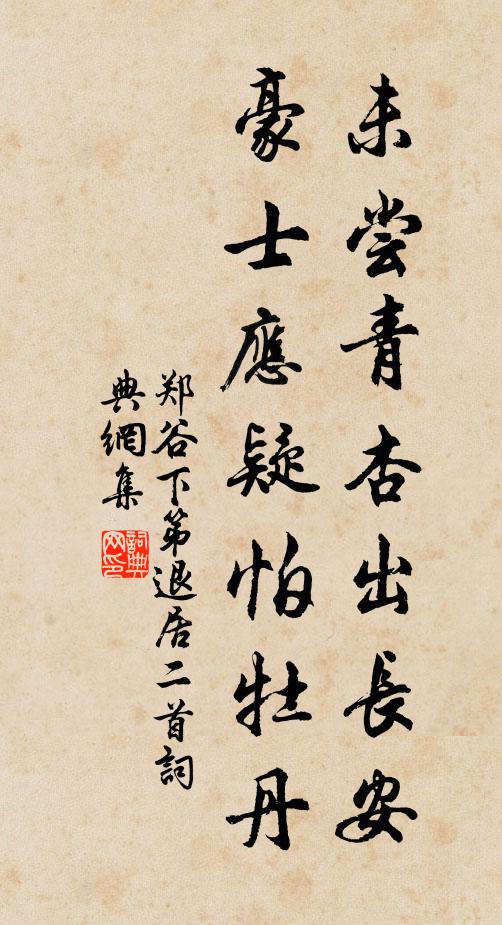 未尝青杏出長安
豪士應疑怕牡丹
郑谷下第退居二首詞
典網集
詞典
网印